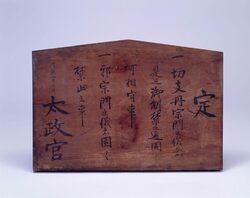 定
一切支丹宗門之儀者
是迄御制禁之通固ク
可相守事
一邪宗門之儀者固ク
禁止之事
太政官